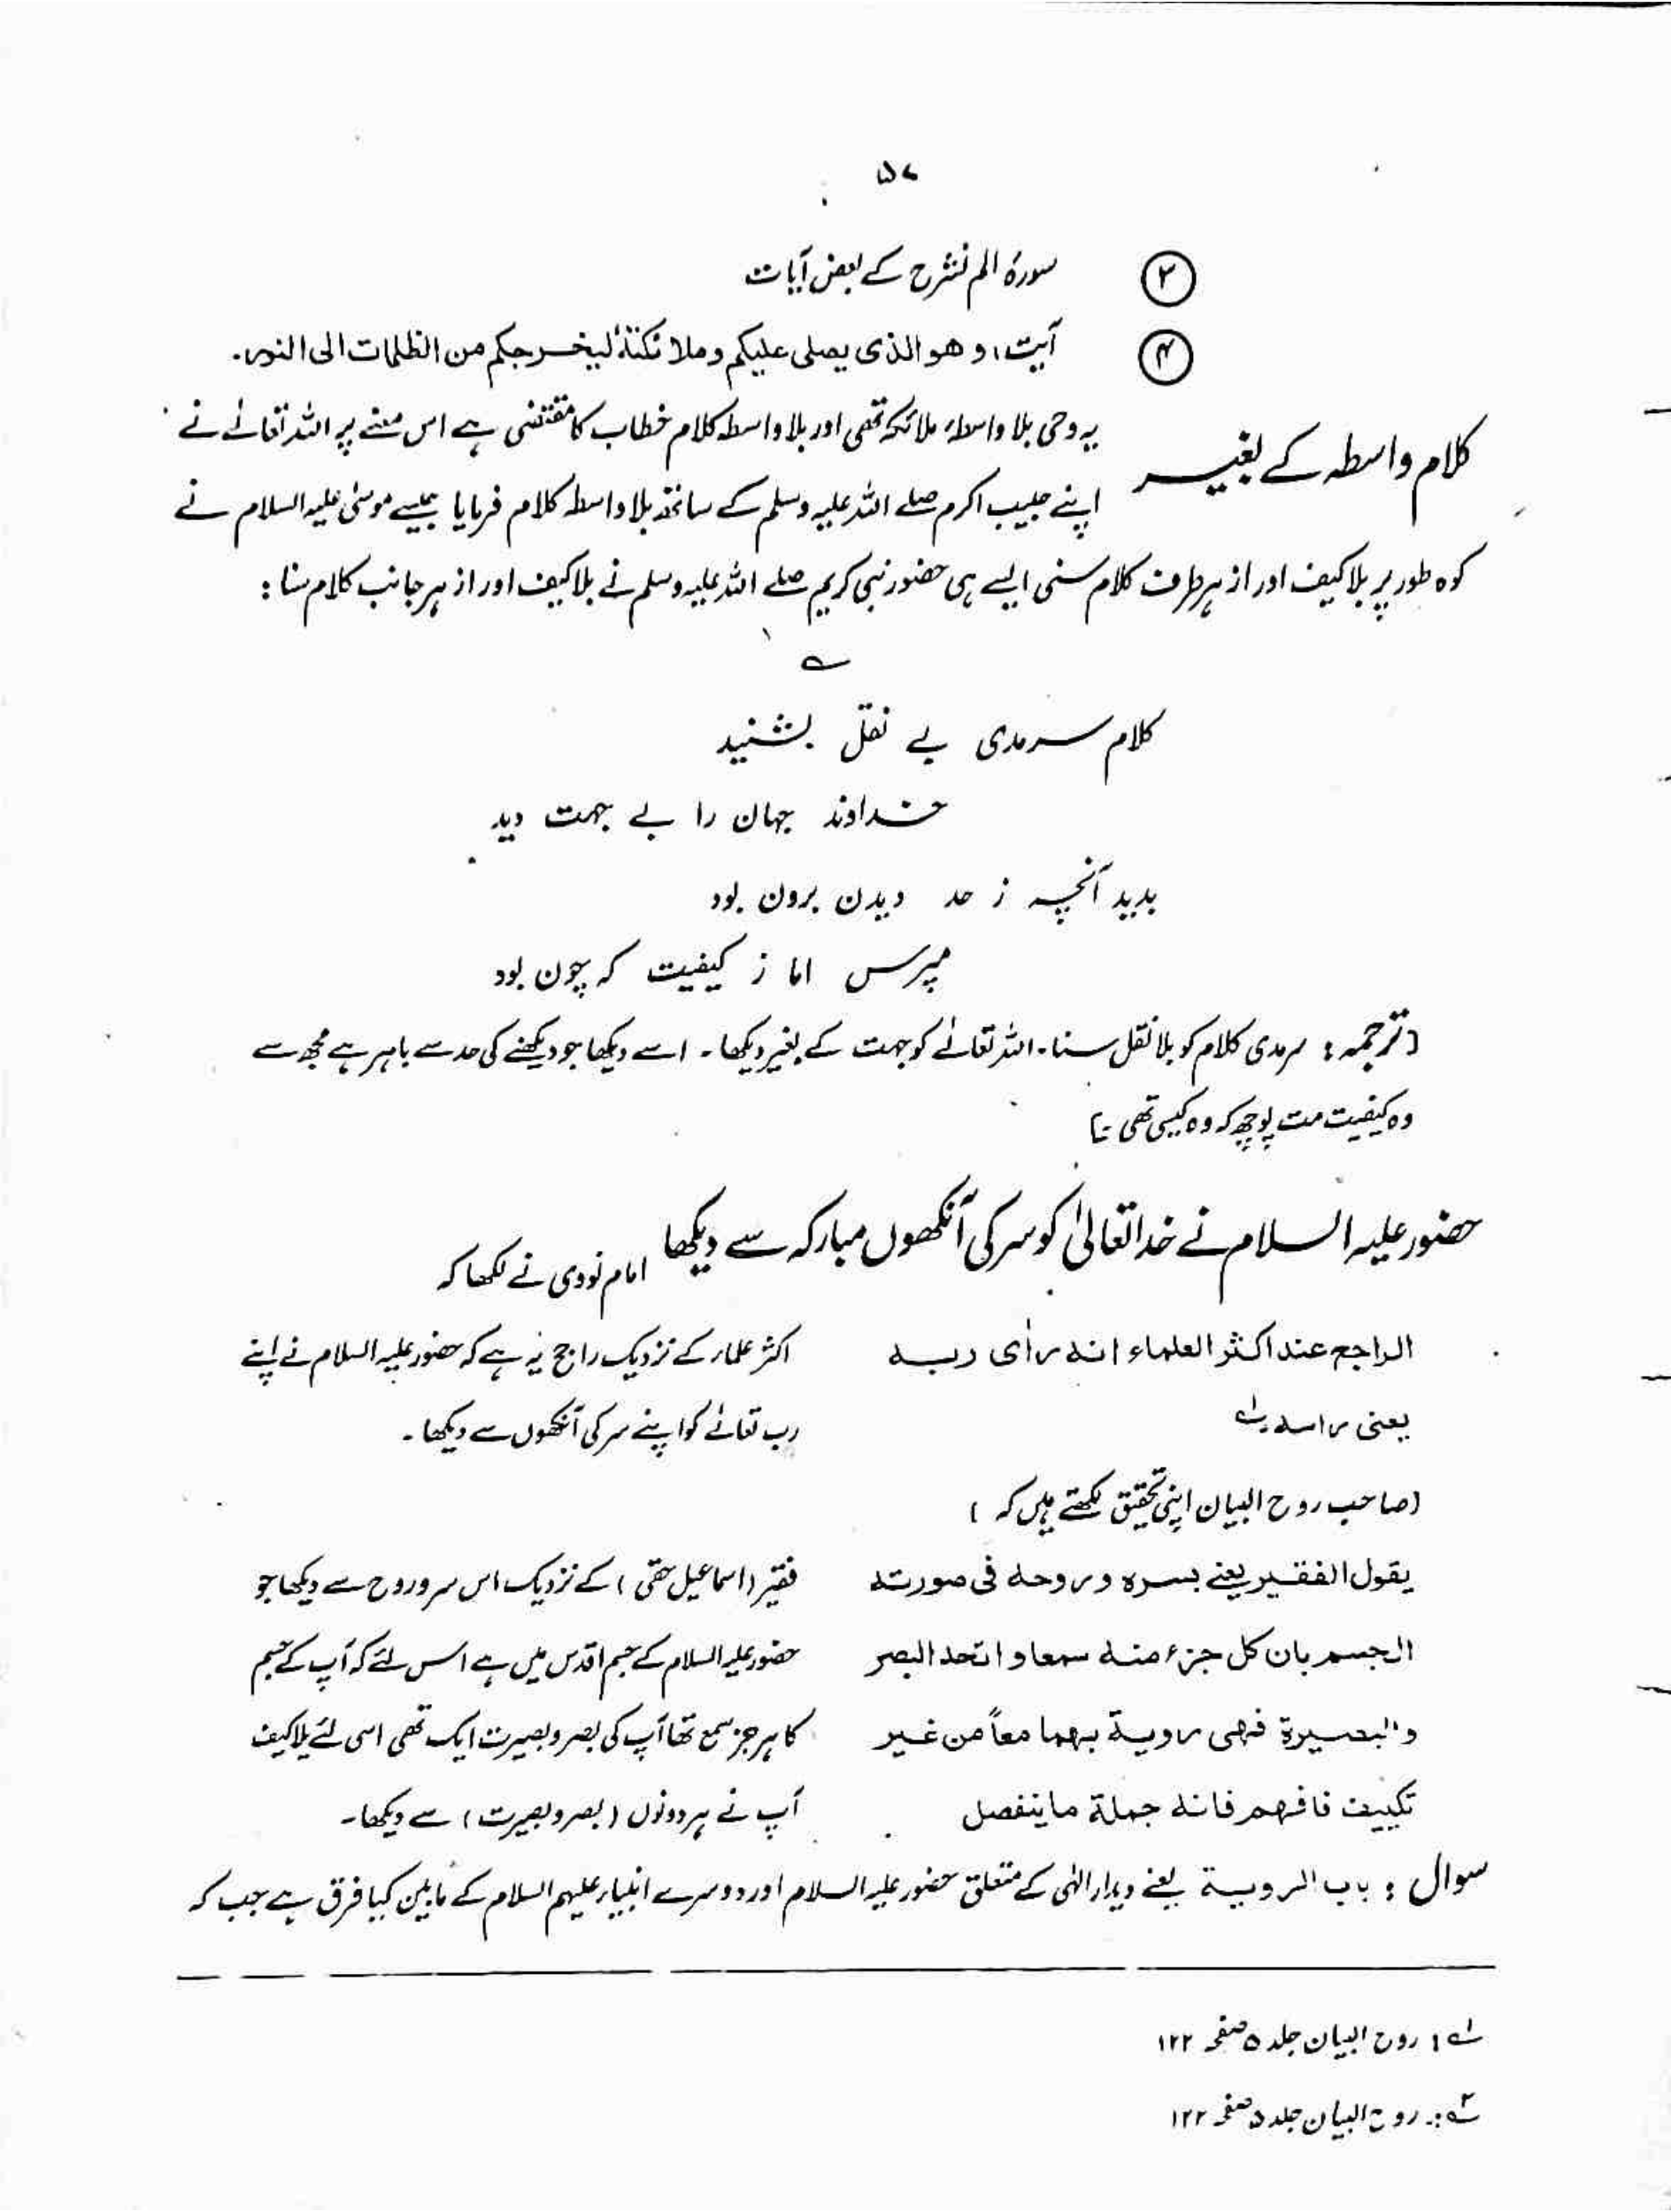 ۵۷
۳ سورۂ الم نشرح کے بعض آیات
۴ آیت، و ھو الذی یصلی علیکم وملائکتہٗ لیخرجکم من الظلمات الی النور۔
کلام واسطہ کے بغیر
یہ وحی بلا واسطۂ ملائکہ تھی اور بلا واسطہ کلام خطاب کا مقتضی ہے اس معنے پر اللہ تعالےٰ نے
اپنے حبیب اکرم صلے اللہ علیہ وسلم کے ساتھ بلا واسطہ کلام فرمایا جیسے موسیٰ علیہ السلام نے
کوہ طور پر بلا کیف اور از ہر طرف کلام سنی ایسے ہی حضور نبی کریم صلے اللہ علیہ وسلم نے بلا کیف اور از ہر جانب کلام سنا :
؎
کلام سرمدی بے نقل بشنید
خداوند جہان را بے جہت دید
بدید آنچہ ز حد دیدن برون بود
مپرس اما ز کیفیت کہ چون بود
(ترجمہ : سرمدی کلام کو بلا نقل سنا۔ اللہ تعالےٰ کو جہت کے بغیر دیکھا۔ اسے دیکھا جو دیکھنے کی حد سے باہر ہے مجھ سے
وہ کیفیت مت پوچھ کہ وہ کیسی تھی
حضور علیہ السلام نے خدا تعالیٰ کو سر کی آنکھوں مبارکہ سے دیکھا امام نووی نے لکھا کہ
الراجح عند اکثر العلماء انہ رأی ربہ
یعنی راسہ لہ
اکثر علماء کے نزدیک راجح یہ ہے کہ حضور علیہ السلام نے اپنے
رب تعالےٰ کو اپنے سر کی آنکھوں سے دیکھا۔
(صاحب روح البیان اپنی تحقیق لکھتے ہیں کہ )
یقول الفقیر یعنے بسرہ وروحہ فی صورتہ
الجسم بان کل جزء منہ سمعا و اتحد البصر
والبصیرۃ فہی رویۃ بہما معاً من غیر
تکییف فافہم فانہ جملۃ ماینفصل
فقیر (اسماعیل حقی) کے نزدیک اس سر و روح سے دیکھا جو
حضور علیہ السلام کے جسم اقدس میں ہے اس لئے کہ آپ کے جسم
کا ہر جز سمع تھا آپ کی بصر و بصیرت ایک تھی اسی لئے بلا کیف
آپ نے ہر دونوں (بصر و بصیرت) سے دیکھا۔
سوال : باب الرویۃ یعنے دیدار الٰہی کے متعلق حضور علیہ السلام اور دوسرے انبیاء علیہم السلام کے مابین کیا فرق ہے جب کہ
لہ ۱ : روح البیان جلد ۵ صفحہ ۱۲۲
۲ :۔ روح البیان جلد ۵ صفحہ ۱۲۲